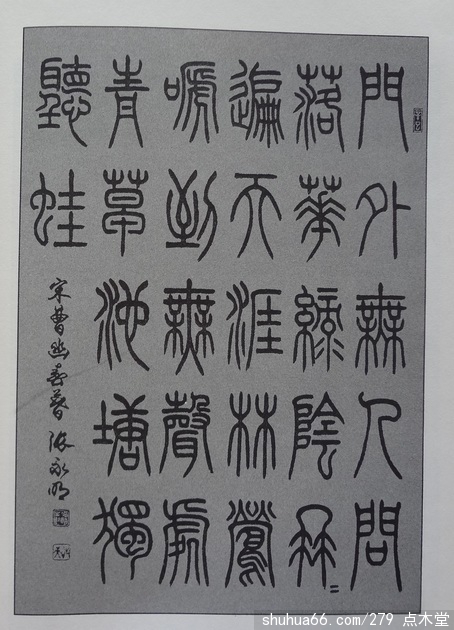 門外無人問
落華綠陰冉〻
遍天涯林鶯
嗁到無聲處
青草池塘獨
聽蛙
宋曹幽春暮 永明
shuhua66.com/279 点木堂